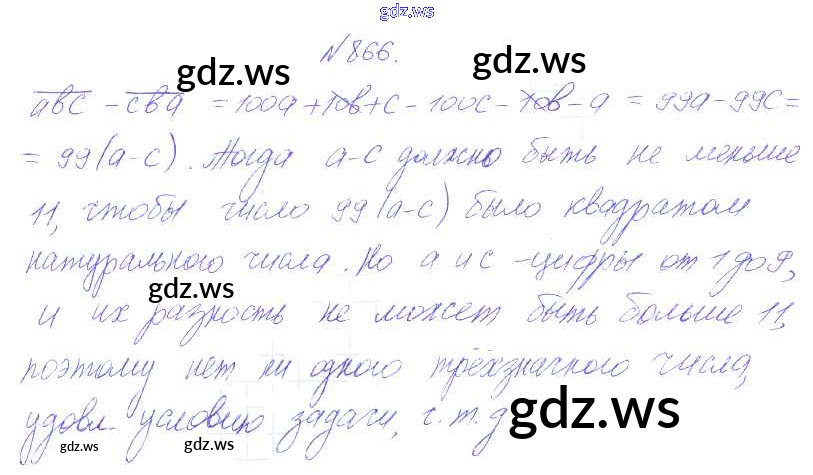 gdz.ws
№866.
gdz.ws gdz.ws
abc - cba = 100a+10b+c-100c-10b-a = 99a-99c=
= 99(a-c). Тогда a-c должно быть не меньше
11, чтобы число 99(a-c) было квадратом
натурального числа. Но a и c - цифры от 1 до 9,
gdz.ws
и их разность не может быть больше 11,
поэтому нет ни одного трёхзначного числа,
удовл. условию задачи, ч.т.д
gdz.ws
gdz.ws gdz.ws